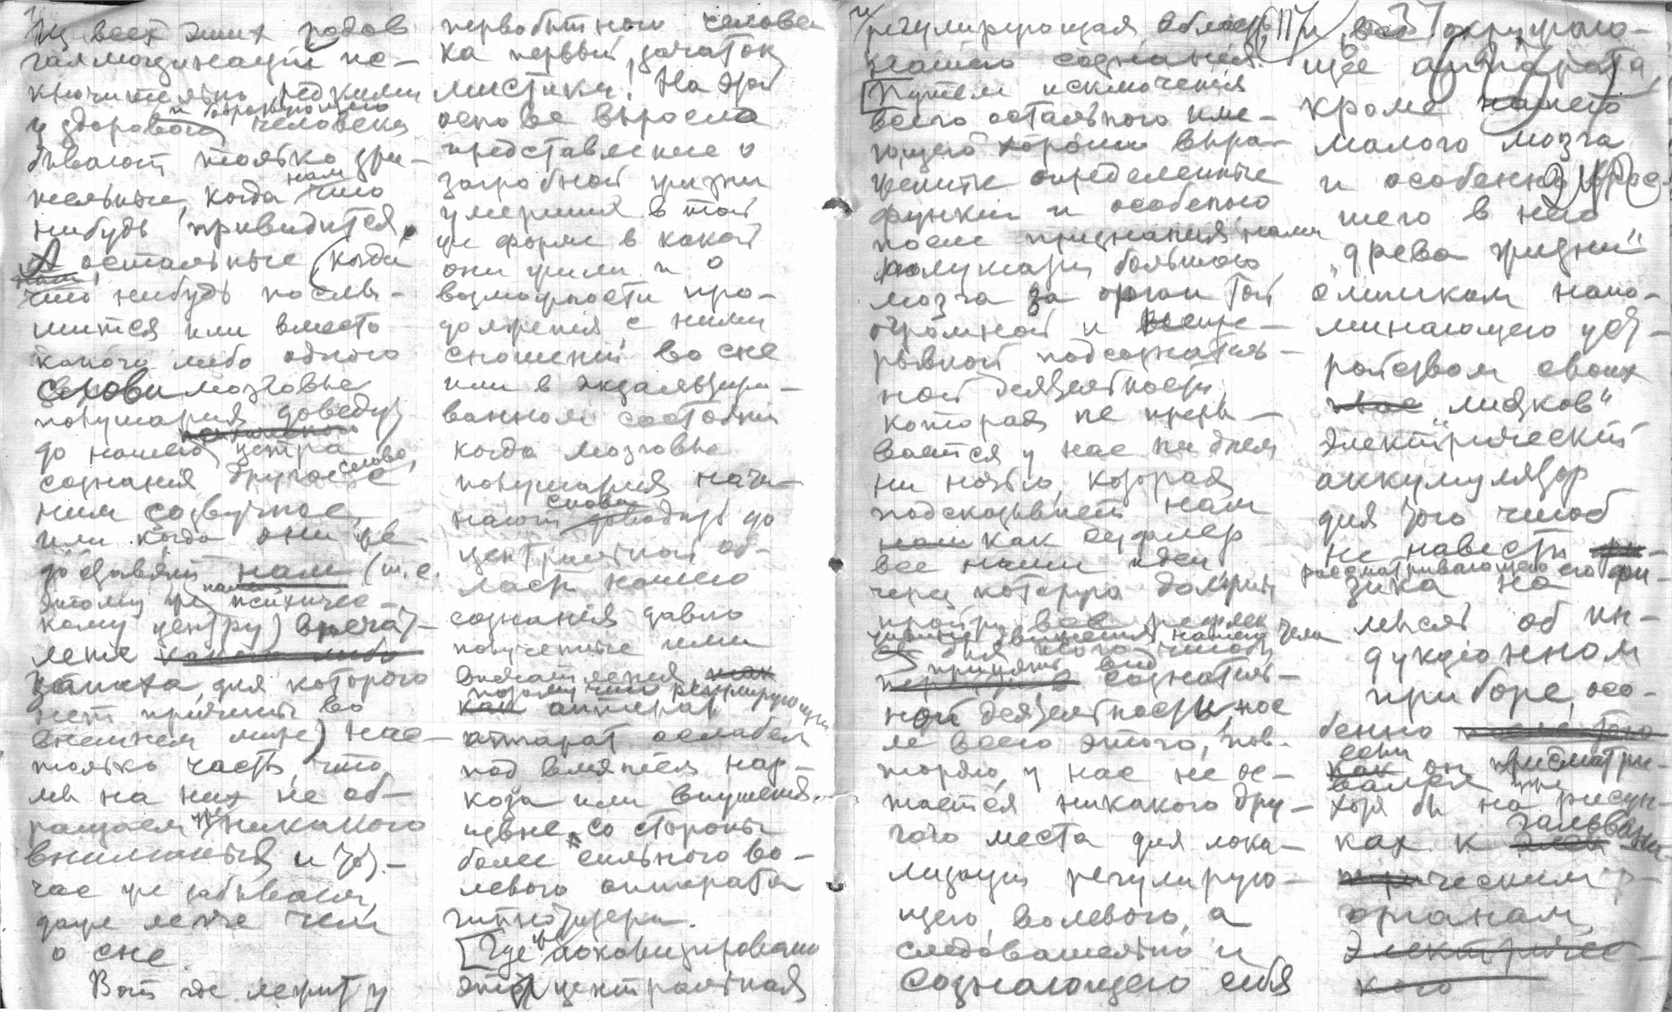 Из всех этих родов
галлюцинаций ис-
ключительно редкими
и бодрствующего
у здорового человека
бывают только зри-
тельные, когда нам что
нибудь привидится.
А остальные (когда
что нибудь послы-
шится или вместо
какого либо одного
слова мозговые
полушария доведут
до нашего центра
сознания другое слово,
с ним созвучное,
или когда они
доставят нам (т. е.
этому же нашему психичес-
кому центру) впечат-
ление
запаха, для которого
нет причины во
внешнем мире)
только часты, что
мы на них не об-
ращаем никакого
внимания и тот-
час же забываем,
даже легче чем
о сне.
Вот где лежит у
первобытного челове-
ка первый зачаток
мистики! На этой
основе выросло
представление о
загробной жизни
умерших в той
же форме в какой
они жили и о
возможности про-
должения с ними
сношений во сне
или в экзальтиро-
ванном состоянии
когда мозговые
полушария начи-
нают снова доводить до
центральной об-
ласти нашего
сознания давно
полученные ими
впечатления
потому что регулирующий
аппарат
аппарат ослабел
под влиянием нар-
коза или внушения
извне со стороны
более сильного во-
левого аппарата
гипнотизера.
Где же локализирована
эта центральная
регулирующая область
нашего сознания?
Путем исключения
всего остального име-
ющего хорошо выра-
женные определенные
функции и особенно
после признания нами
полушарий большого
мозга за орган той
огромной и непре-
рывной подсознатель-
ной деятельности
которая не преры-
вается у нас ни днем
ни ночью, которая
подсказывает нам
нам как суфлер
все наши идеи
через которую должны
пройти все
движения нашего тела
для того чтобы
принять вид сознатель-
ной деятельности, пос-
ле всего этого, пов-
торяю, у нас не ос-
тается никакого дру-
гого места для лока-
лизации регулирую-
щего, волевого, а
следовательно и
сознающего себя
и всё окружаю-
щее аппарата,
кроме нашего
малого мозга
и особенно рос-
шего в нем
„древа жизни“
слишком напо-
минающего уст-
ройством своих
„листков“
электрический
аккумулятор
для того чтоб
не навести
рассматривающего его фи-
зика на
мысль об ин-
дукционном
приборе, осо-
бенно
если он присмотри-
вался
хотя бы на рисун-
ках к гальвани-
ческим
органам
электричес-
кого